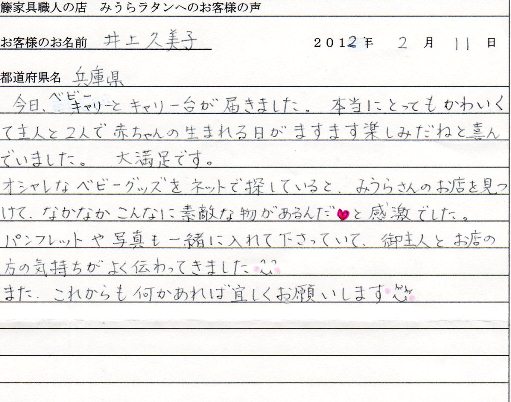 籐家具職人の店　みうらラタンへのお客様の声
お客様のお名前　井上久美子　2012年　2月　11日
都道府県名　兵庫県
今日、ベビーキャリーとキャリー台が届きました。本当にとってもかわいく
て主人と2人で赤ちゃんの生まれる日がますます楽しみだねと喜ん
でいました。大満足です。
オシャレなベビーグッズをネットで探していると、みうらさんのお店を見つ
けて、なかなかこんなに素敵な物があるんだ♥と感激でした。
パンフレットや写真も一緒に入れて下さっていて、御主人とお店の
方の気持ちがよく伝わってきました
また、これからも何かあれば宜しくお願いします